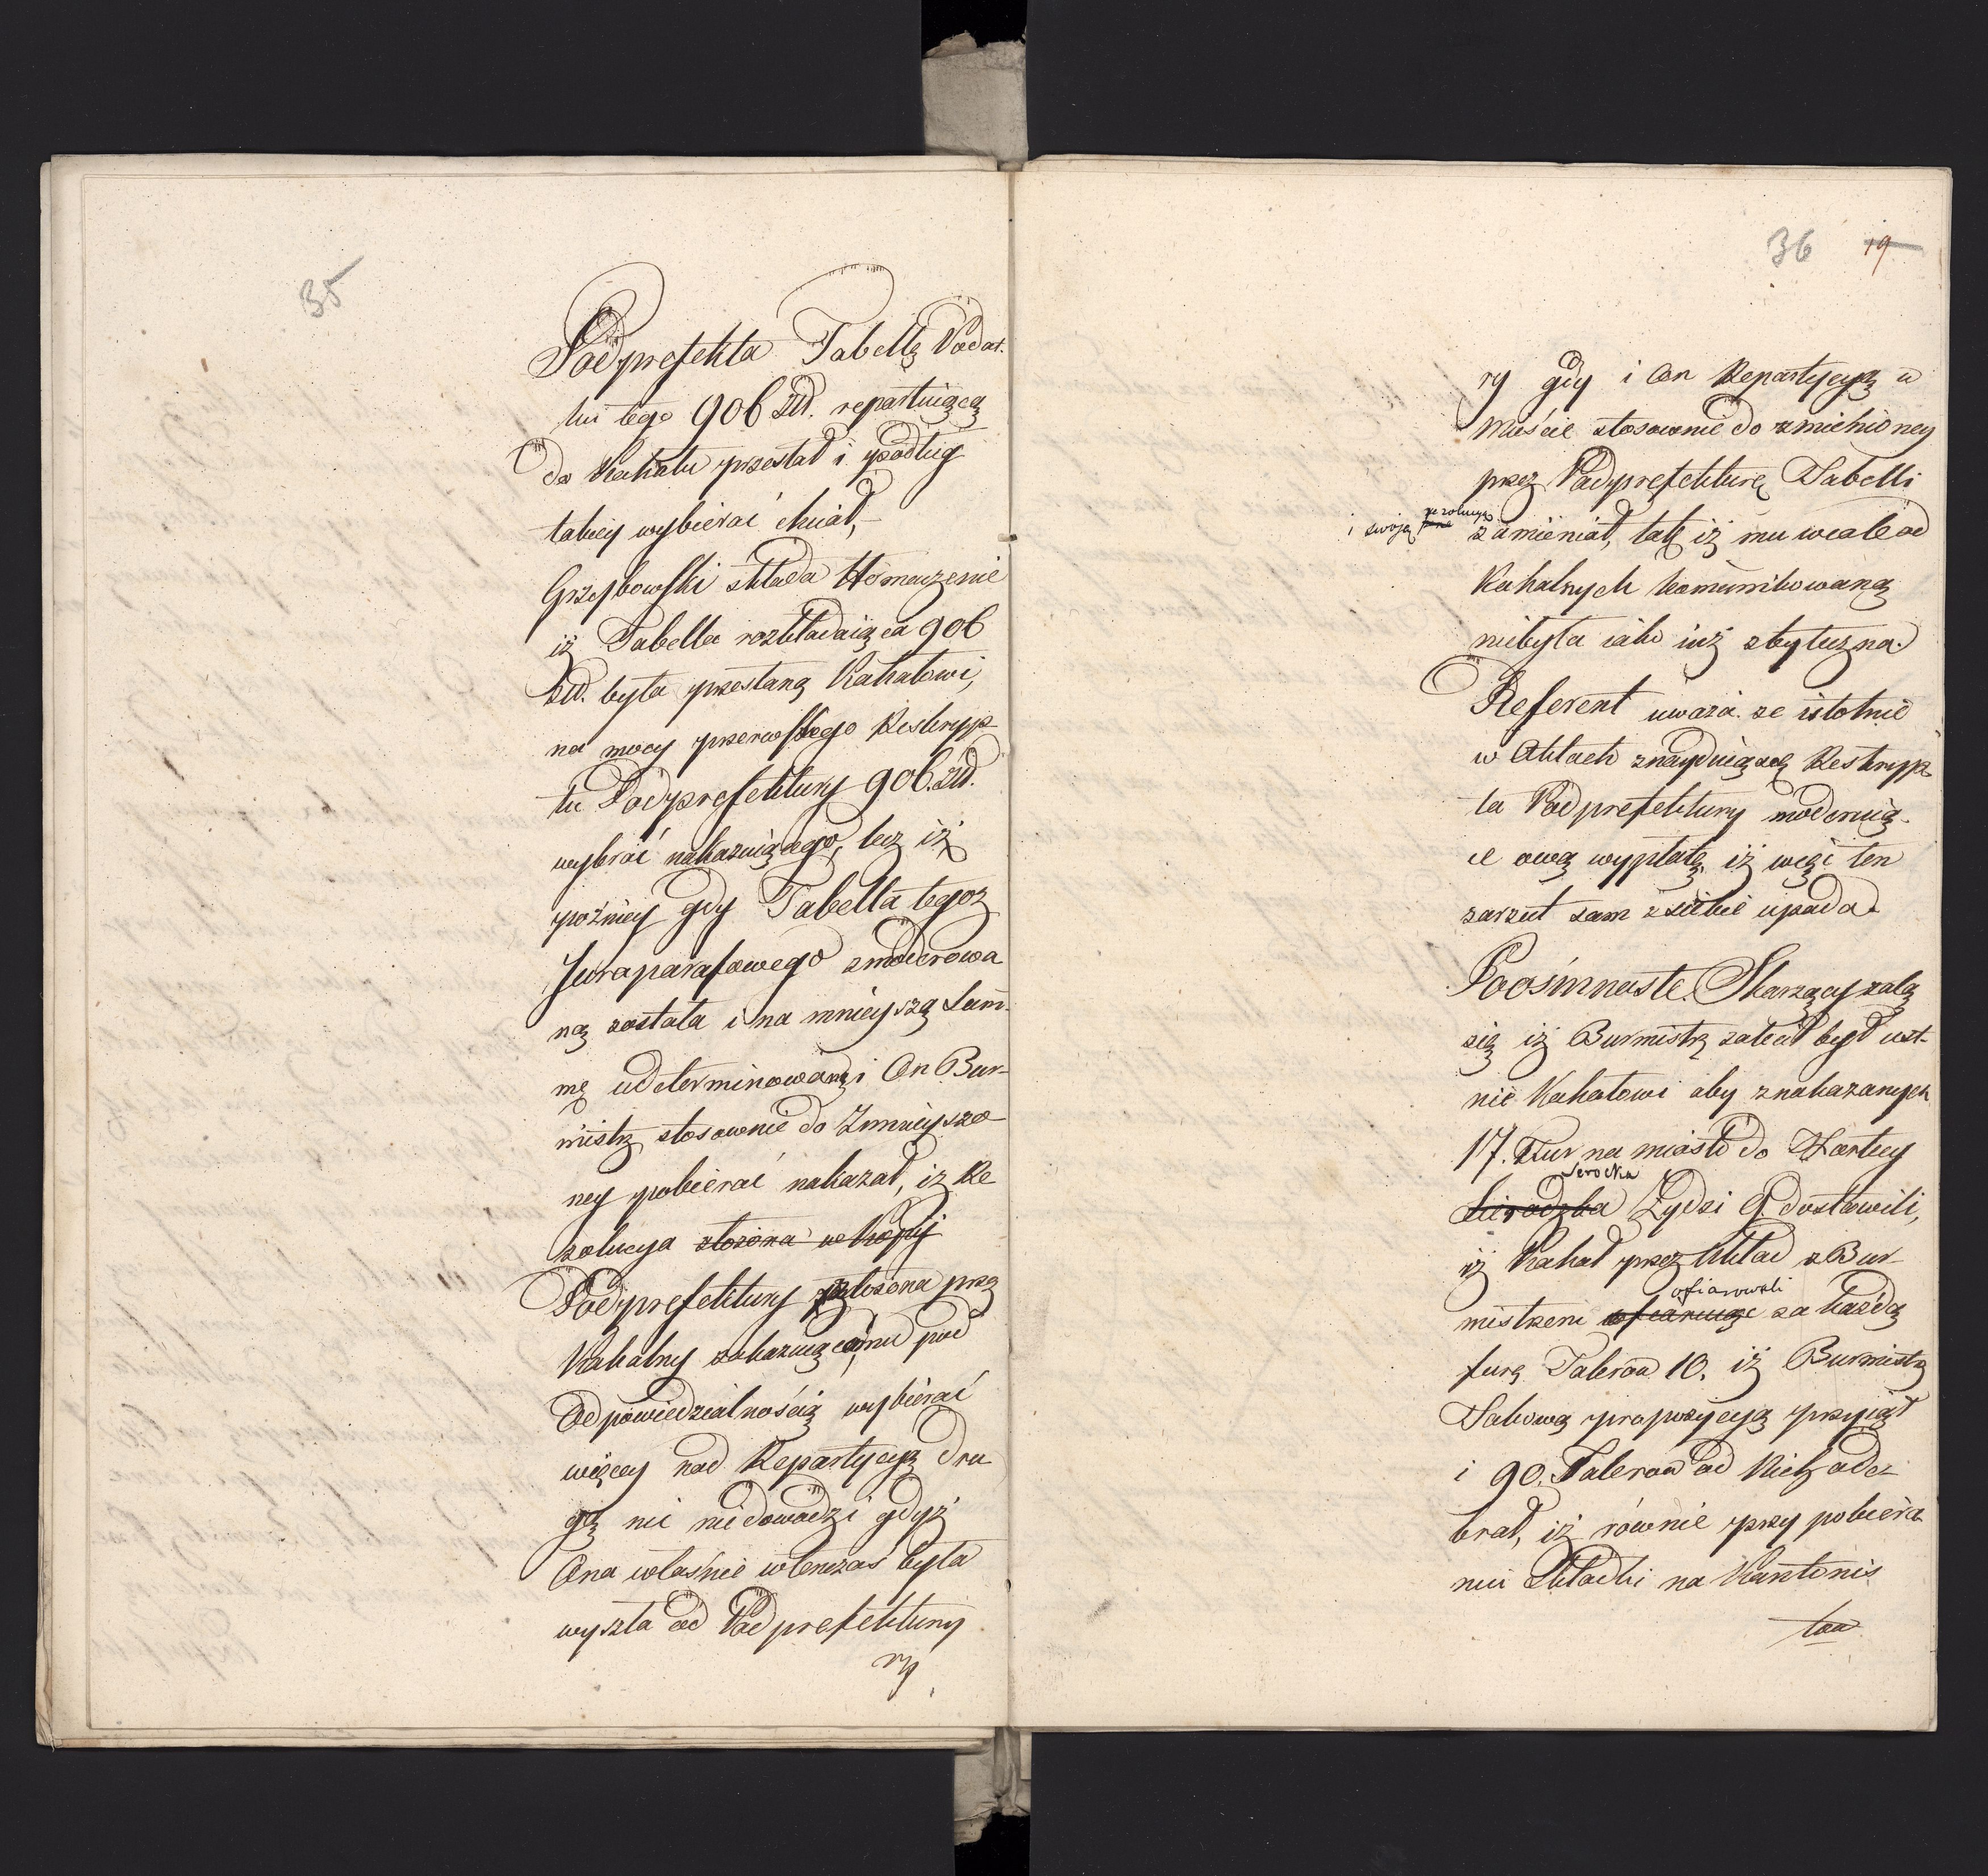 35
Podprefekta Tabellę Podat-
ku tego 906 Złł. repartuiącą
do Kahału przesłał i podług
takiey wybierać chciał,
Grzybowski składa tłomaczenie
iż Tabella rozkładaiąca 906
Złł. była przesłaną Kahałowi,
na mocy pierwszego Reskryp
tu Podprefektury 906. Złł.
wybrać nakazuiącego, lecz iż
poźniey gdy Tabella tegoż
Juraparafowego zmoderowa
ną została i na mnieyszą Sum-
mę udeterminowaną i On Bur-
mistrz stosownie do Zmnieyszo
ney pobierać nakazał, iż Re
zolucya złożona w kopij
Podprefektury złożona prze
Kahalny zakazuiącemu pod
Odpowiedzialnością wybierać
więcey nad Repartycyą dru
gą nic niedowodzi gdyż
Ona właśnie wtenczas była
wyszła od Podprefektury
ry
36 19
ry gdy i On Repartycyą w
Mieście stosownie do zmienioney
przez Podprefekturę Tabelli
i swoją rezolucyą zamieniał, tak iż mu wcale od
Kahalnych komunikowaną
niebyła iako iuż zbyteczna.
Referent uważa że istotnie
w Aktach znayduiącą Reskryp
ta Podprefektury moderuią-
ce ową wypłatę, iż więc ten
zarzut sam z siebie upada.
Poośmnaste. Skarzący żalą
się iż Burmistrz zalecił był ust-
nie Kahałowi aby z nakazanych
17. Fur na miasto do Fortecy
Serocka
Sieradzka Żydzi 9 dostawili,
iż Kahał przez układ z Bur-
ofiarowali
mistrzem ofiaruiąc za każdą
furę Talerów 10. iż Burmistrz
Takową propozycyą przyiął
i 90. Talerow od Nich ode
brał, iż równie przy pobiera
niu Składki na Kantonis
tow